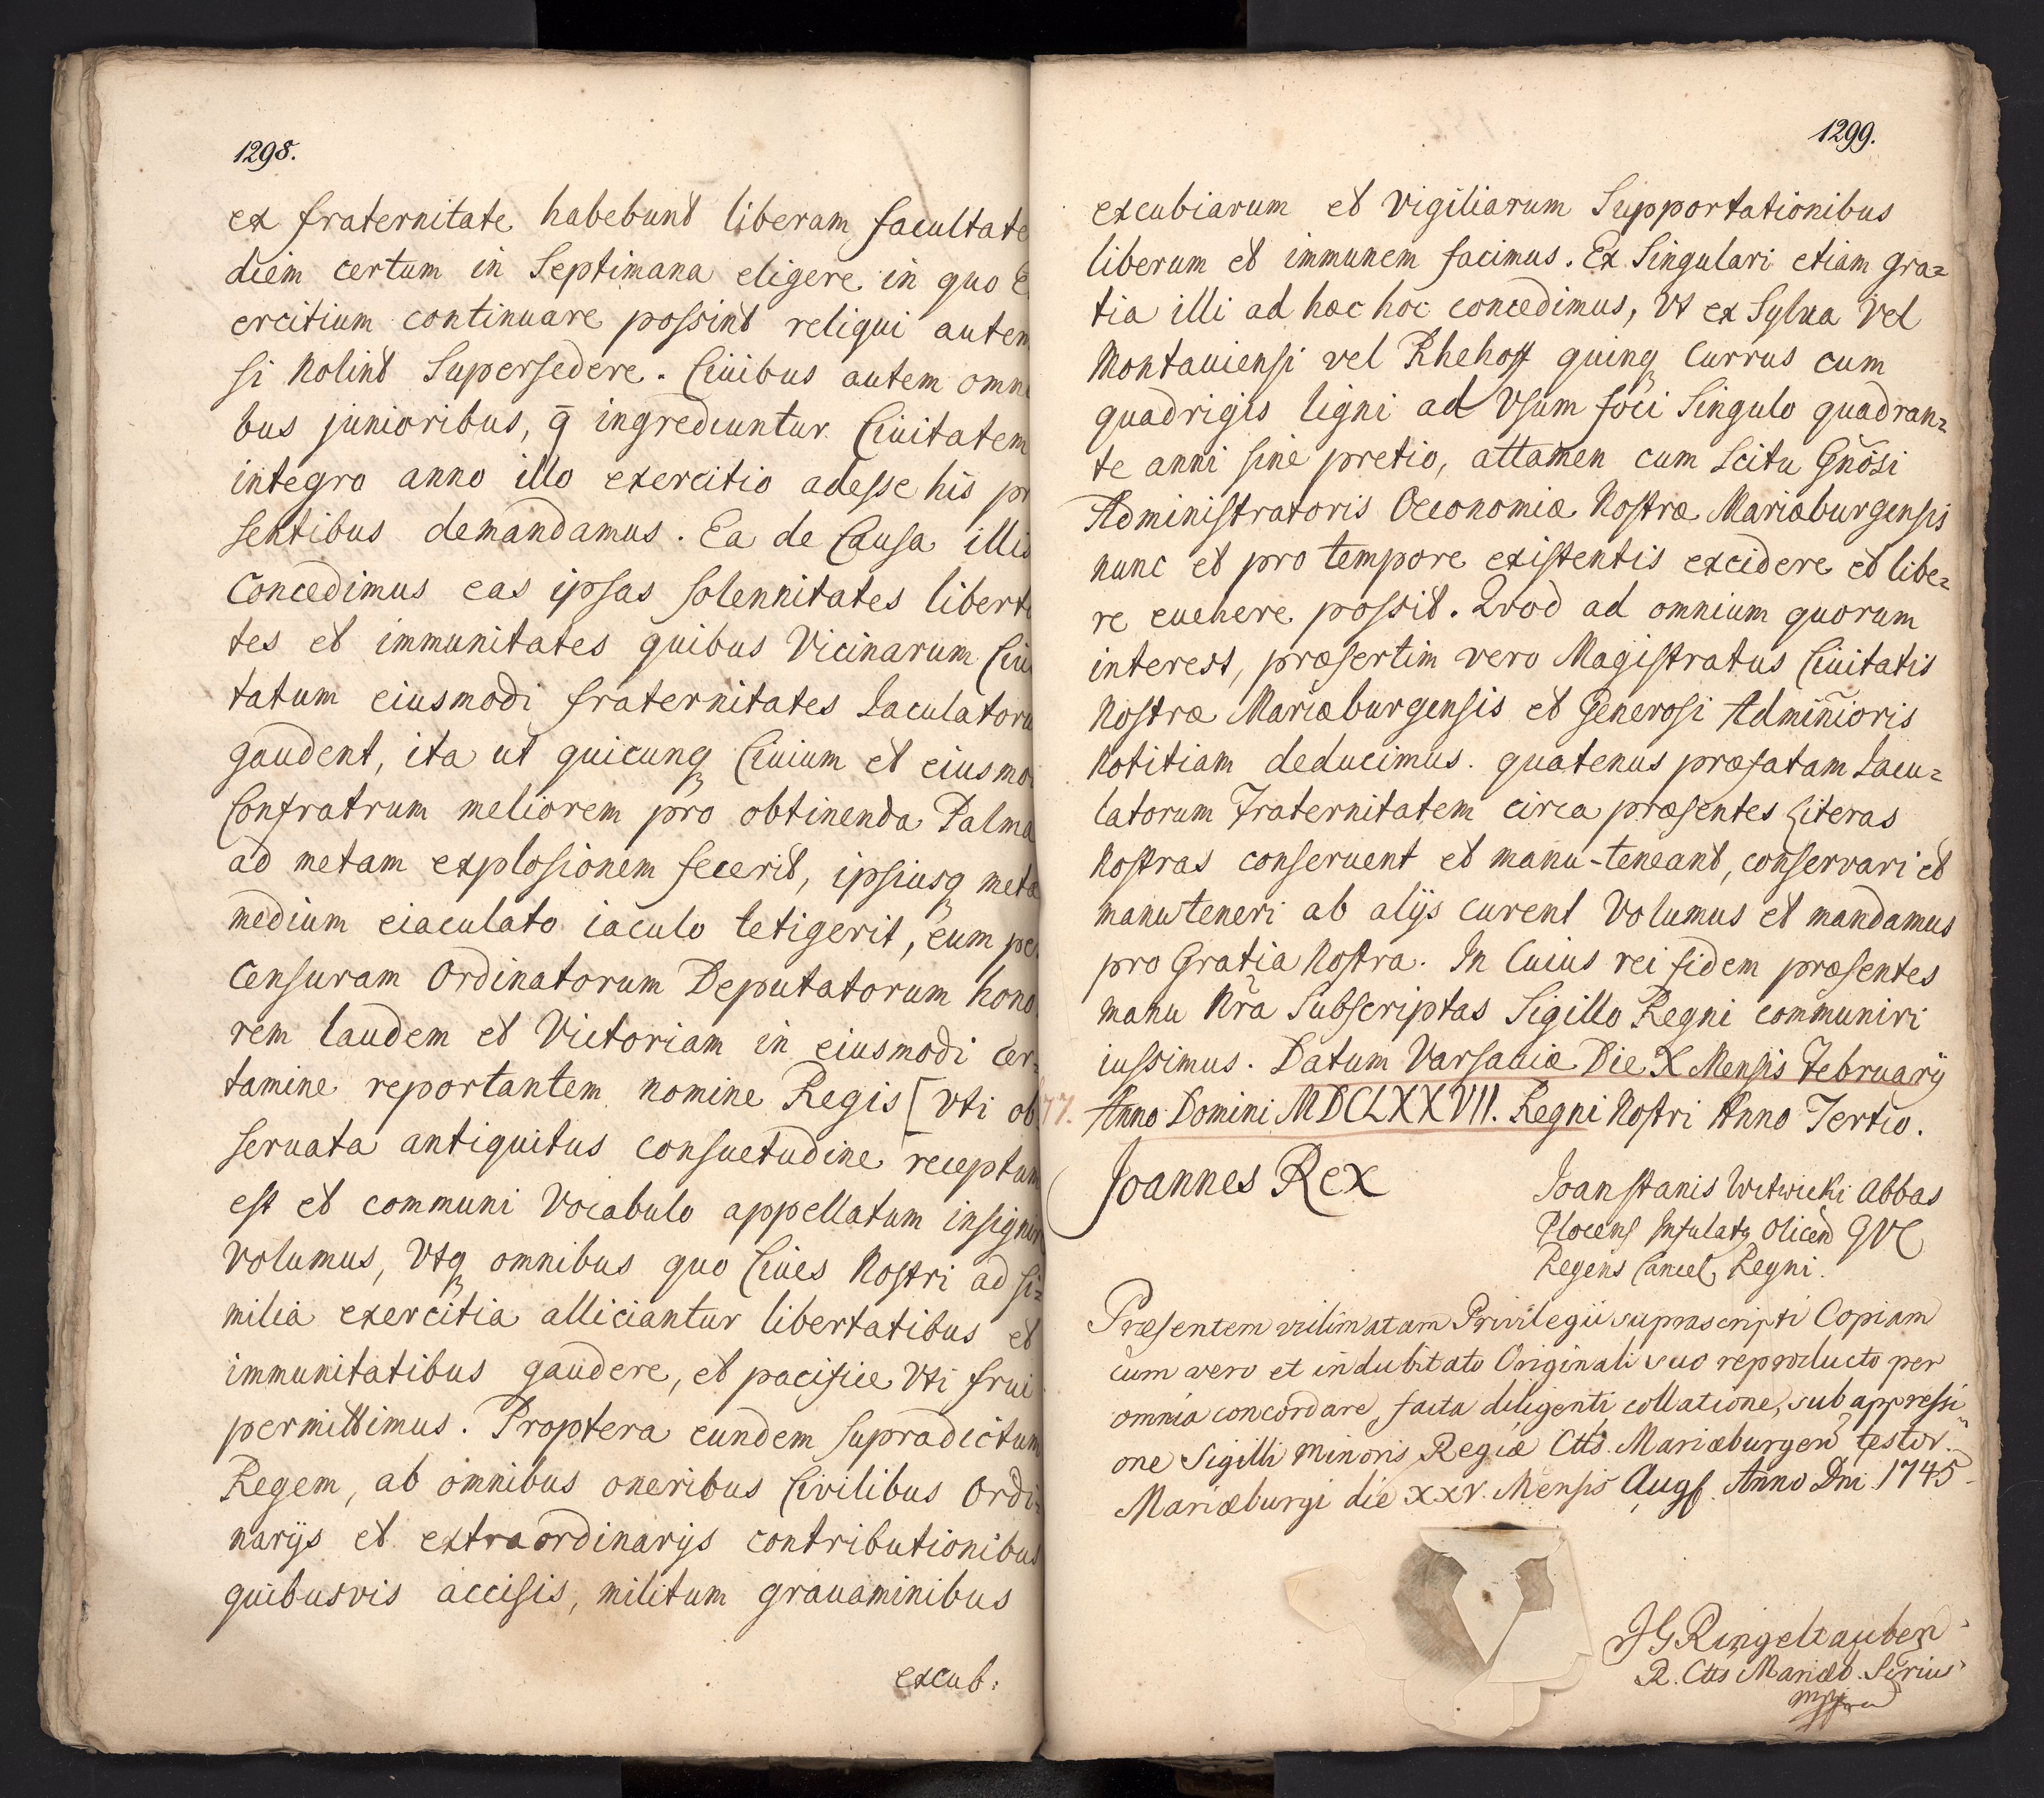 1298.
ex fraternitate habebunt liberam facultate
diem certum in Septimana eligere in quo E
ercitium continuare possint reliqui autem
si nolint Supersedere. Ciuibus autem omni
bus junioribus, q̄ ingrediuntur Ciuitatem
integro anno illo exercitio adesse his pr
sentibus demandamus. Ea de Causa illis
Concedimus eas ipsas solennitates liberta
tes et immunitates quibus Vicinarum Ciui
tatum eiusmodi fraternitates Iaculatoru
gaudent, ita ut quicunq Ciuium et eiusmo
Confratrum meliorem pro obtinenda Palma
ad metam explosionem fecerit, ipsiusq meta
medium eiaculato iaculo tetigerit, eum per
Censuram Ordinatorum Deputatorum hono-
rem laudem et Victoriam in eiusmodi Cer-
tamine reportantem nomine Regis [Vti ob
seruata antiquitus consuetudine receptum
est et communi Vocabulo appellatum insigniri
Volumus, Vtq omnibus quo Ciues Nostri ad si=
milia exercitia alliciantur libertatibus et
immunitatibus gaudere, et pacifice Vti frui
permittimus. Proptera eundem supradictum
Regem, ab omnibus oneribus Civilibus Ordi=
narijs et extraordinarijs contributionibus
quibusvis accisis, militum grauaminibus
excub:
1299.
excubiarum et Vigiliarum Supportationibus
liberum et immunem facimus. Ex Singulari etiam gra=
tia illi ad haec hoc concedimus, Vt ex Sylua Vel
Montauiensi vel Rhehoff quinq Currus cum
quadrigis ligni ad Vsum foci Singulo quadran=
te anni sine pretio, attamen cum Scitu Gnosi
Administratoris Oeconomiæ Nostræ Mariæburgensis
nunc et pro tempore existentis excidere et libe=
re euehere possit. Quod ad omnium quorum
interest, præsertim vero Magistratus Ciuitatis
Nostræ Mariæburgensis et Generosi Adminioris
Notitiam deducimus. quatenus præfatam Iacu=
latorum Fraternitatem circa præsentes Literas
Nostras conseruent et manu-teneant, conservari et
manuteneri ab alijs curent Volumus et mandamus
pro Gratia Nostra. In Cuius rei fidem præsentes
manu Nra Subscriptas Sigillo Regni communiri
iussimus. Datum Varsauiæ Die X Mensis Februarij
77. Anno Domini MDCLXXVII. Regni Nostri Anno Tertio.
Joannes Rex
Ioan stanis Witwicki Abbas
Plocens Infulatq Olicen GVC
Regens Cancel. Regni.
Præsentem vidimatam Privilegii suprascripti Copiam
cum vero et indubitato Originali suo reproducto per
omnia concordare, facta diligenti collatione, sub appressi
one Sigilli minoris Regiæ Ctts. Mariæburgen testor.
Mariæburgi die XXV. Mensis Augs. Anno Dni 1745
JG Ringeltauben
R. Ctts Mariæb. Scrius
mppria